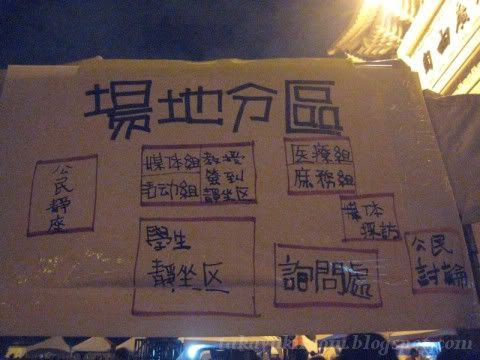 場地分區
公民靜座
媒体組
活动組
教授
簽到
靜坐区
医療組
庶務組
媒体
採訪
學生
靜坐区
詢問處
公民
討論